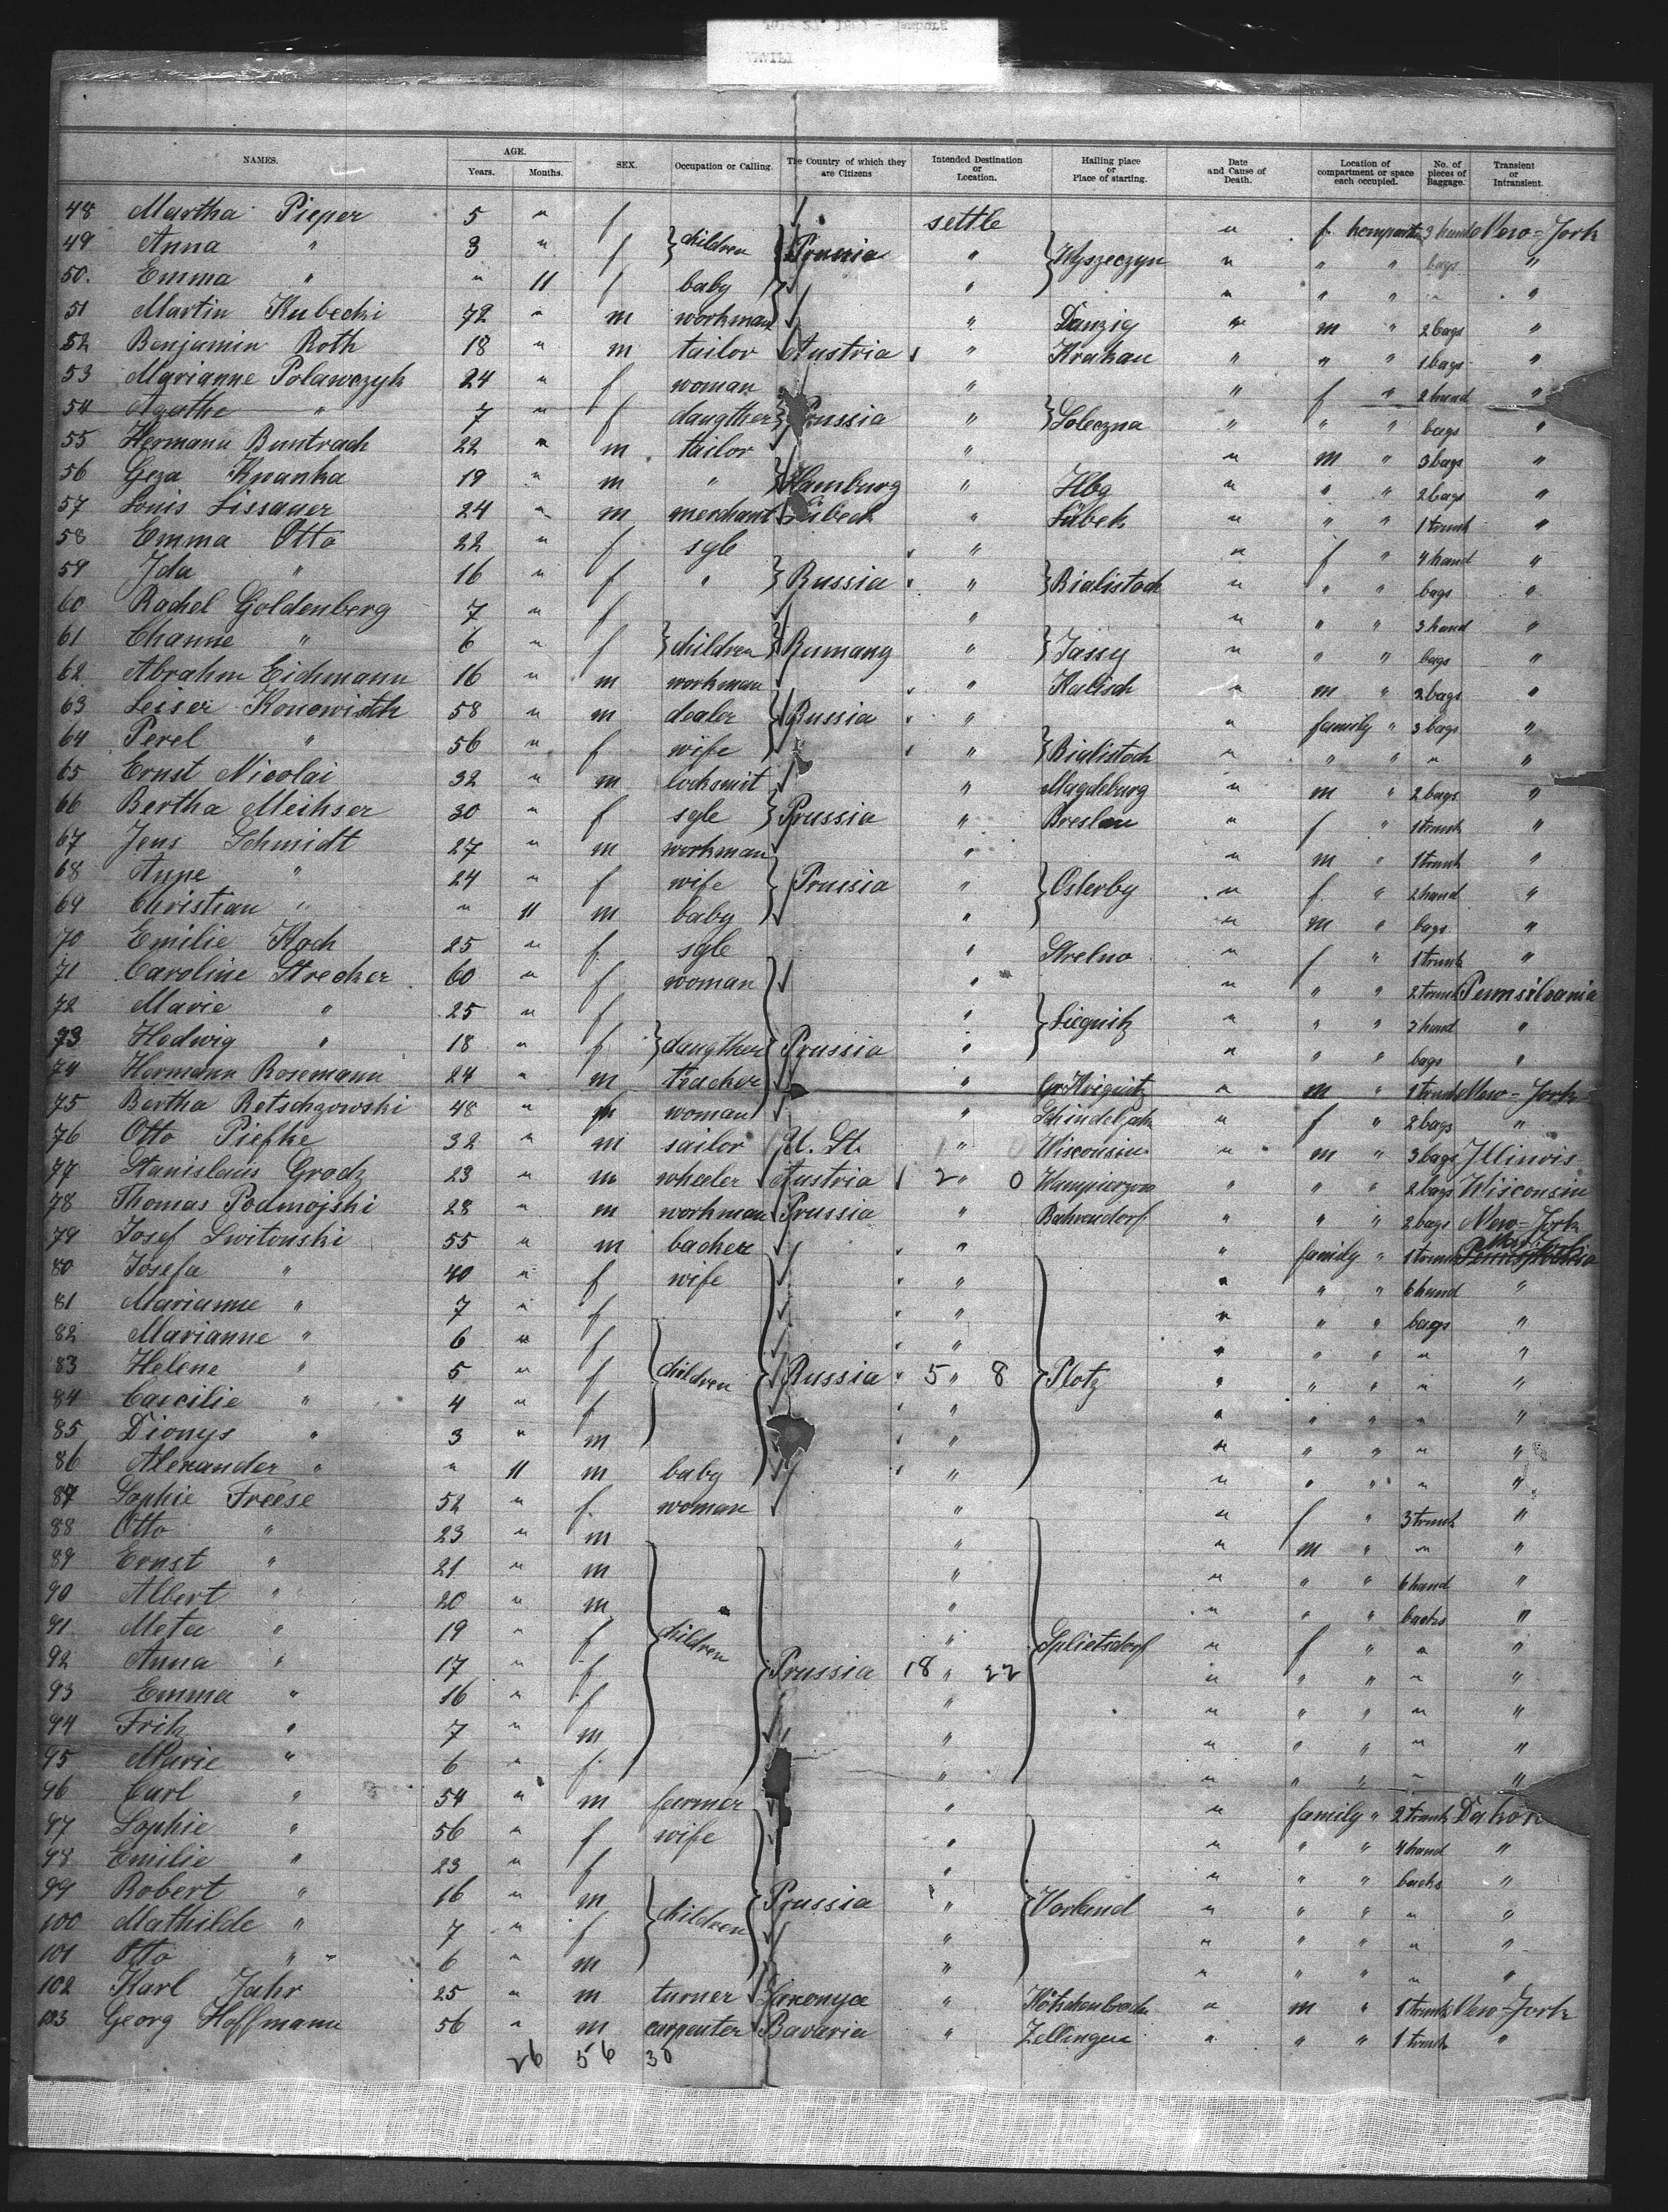 NAMES. AGE. Years. Months. SEX. Occupation or Calling. The Country of which they are Citizens Intended Destination or Location. Hailing place or Place of starting. Date and Cause of Death. Location of compartment or space each occupied. No. of pieces of Baggage. Transient or Intransient.
48 Martha Pieper 5 " f settle " f 3 hand New=York
49 Anna " 3 " f children Prussia " Wyszeczyn " " " bags "
50. Emma " " 11 f baby " " " " " "
51 Martin Kubecki 72 " m workman " Danzig " m " 2 bags "
52 Benjamin Roth 18 " m tailor Austria " Krakau " " " 1 bags "
53 Marianne Polawczyk 24 " f woman " " f " 2 hand "
54 Agathe " 7 " f daugther Prussia " Soleczna " " " bags "
55 Hermann Buntrach 22 " m tailor " " m " 3 bags "
56 Geza Knanka 19 " m " Hamburg " Hbg " " " 2 bags "
57 Louis Lissauer 24 " m merchant Lübeck " Lübek " " " 1 trunk "
58 Emma Otto 22 " f sgle " " f " 4 hand "
59 Ida " 16 " f " Russia " Bialistock " " " bags "
60 Rachel Goldenberg 7 " f " " " " 3 hand "
61 Channe " 6 " f children Rumany " Jassy " " " bags "
62 Abrahm Eichmann 16 " m workman " Kalisch " m " 2 bags "
63 Leiser Konowitch 58 " m dealer Russia " " family " 3 bags "
64 Perel " 56 " f wife " Bialistock " " " " "
65 Ernst Nicolai 32 " m locksmit " Magdeburg " m " 2 bags "
66 Bertha Meihser 30 " f sgle Prussia " Breslau " f " 1 trunk "
67 Jens Schmidt 27 " m workman " " m " 1 trunk "
68 Anne " 24 " f wife Prussia " Osterby " f " 2 hand "
69 Christian " " 11 m baby " " m " bags "
70 Emilie Koch 25 " f sgle " Strelno " f " 1 trunk "
71 Caroline Strecker 60 " f woman " " " " 2 trunk Pennsilvania
72 Marie " 25 " f " Liegnitz " " " 3 hand "
73 Hedwig " 18 " f daugther Prussia " " " " bags "
74 Hermann Rosemann 24 " m teacher " " m " 1 trunk New=York
75 Bertha Retschgowski 48 " f woman " " f " 2 bags "
76 Otto Piefke 32 " m sailor U. St. " Wisconsin " m " 3 bags Illinois
77 Stanislaus Grodz 23 " m wheeler Austria 2 " 0 " " " 2 bags Wisconsin
78 Thomas Podmojski 28 " m workman Prussia " Bahrendorf " " " 2 bags New=York
79 Josef Switonski 55 " m backer " " family " 1 trunk New York
80 Josefa " 40 " f wife " " " " 6 hand "
81 Marianne " 7 " f " " " " bags "
82 Marianne " 6 " f " " " " " "
83 Helene " 5 " f children Russia 5 " 8 Plotz " " " " "
84 Caecilie " 4 " f " " " " " "
85 Dionys " 3 " m " " " " " "
86 Alexander " " 11 m baby " " " " " "
87 Sophie Freese 52 " f. woman " " f " 3 trunk "
88 Otto " 23 " m " " m " " "
89 Ernst " 21 " m " " " " 6 hand "
90 Albert " 20 " m " " " " backs "
91. Meta " 19 " f children " Splietsdorf " f " " "
92 Anna " 17 " f Prussia 18 " 22 " " " " "
93 Emma " 16 " f " " " " " "
94 Fritz " 7 " m " " " " " "
95 Marie " 6 " f " " " " " "
96 Carl " 54 " m farmer " " family " 2 trunk
97 Sophie " 56 " f wife " " " " 4 hand "
98 Emilie " 23 " f " " " " backs "
99 Robert " 16 " m Prussia " Vorland " " " " "
100 Mathilde " 7 " f children " " " " " "
101 Otto " 6 " m " " " " " "
102 Karl Jahr 25 " m turner Saxonya " " m " 1 trunk New=York
103 Georg Hoffmann 56 " m carpenter Bavaria " Zellingen " " " 1 trunk "
26 56 30